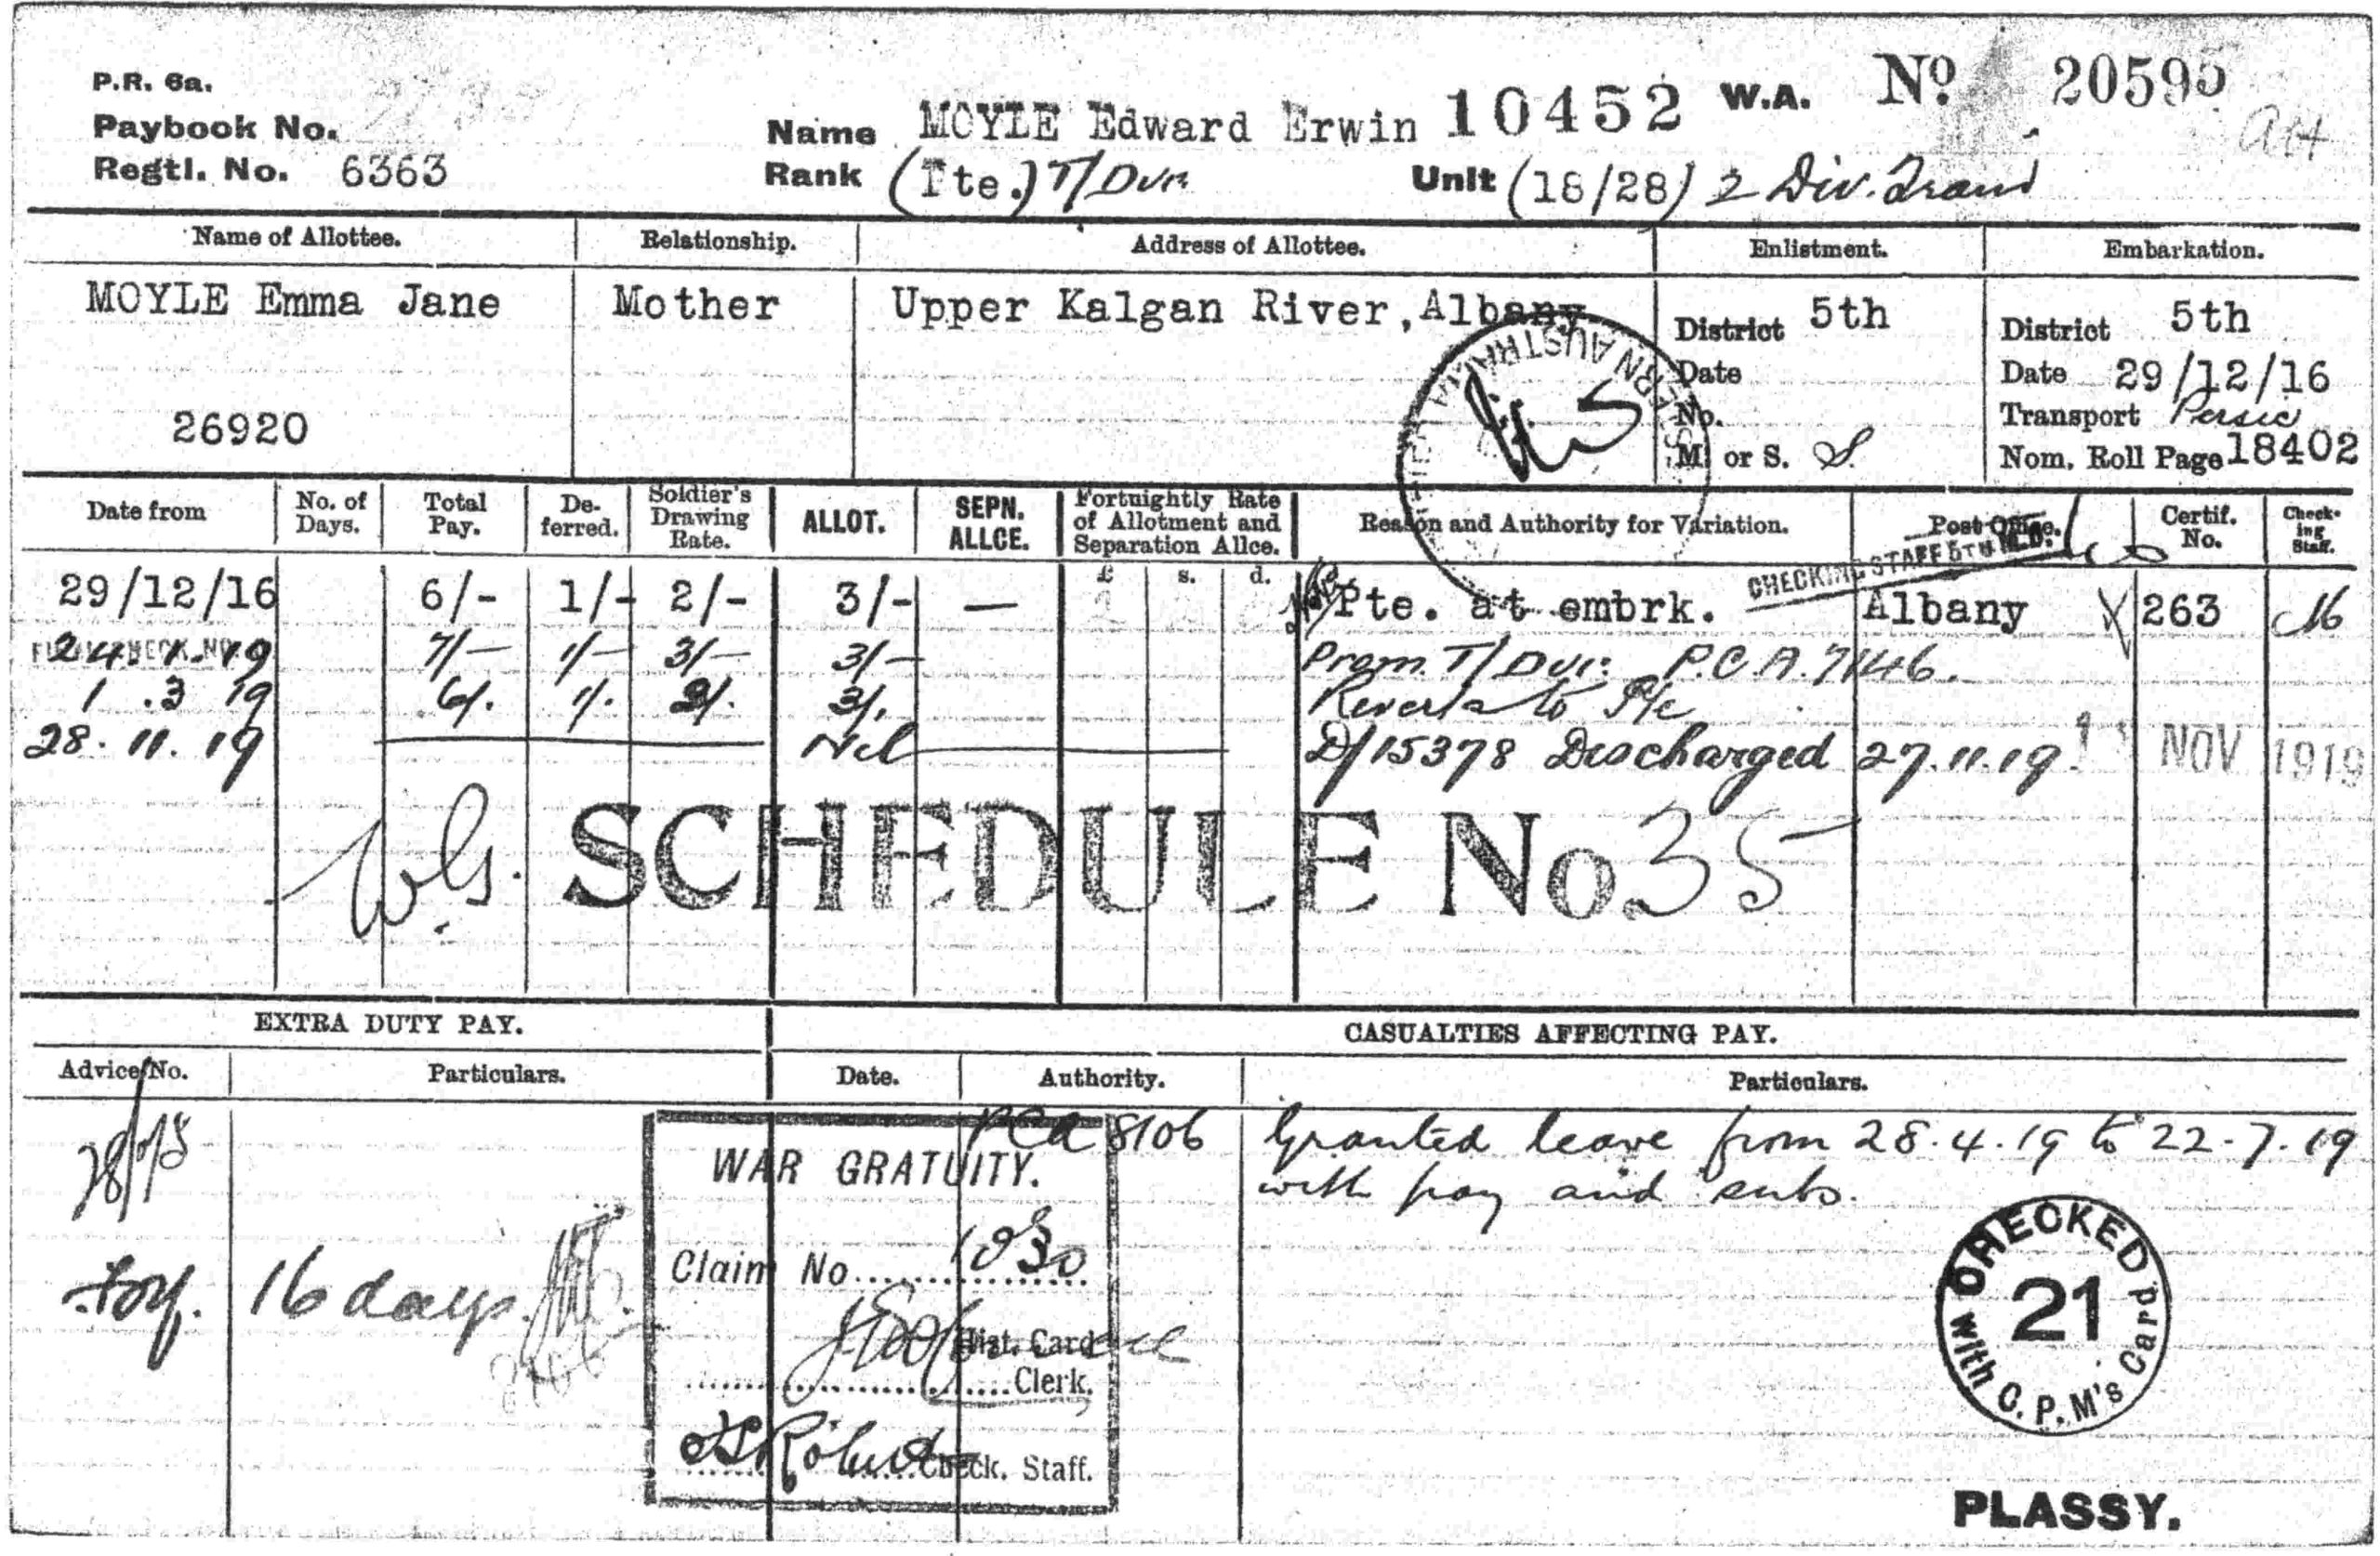 P.R. 6a.
Paybook No.
Regtl. No. 6363
Name MOYLE Edward Erwin 10452 W.A. No. 20595
Rank (Pte.) T/Dvr. Unit (18/28) 2 Div. Train
Name of Allottee. Relationship. Address of Allottee. Enlistment. Embarkation.
MOYLE Emma Jane Mother Upper Kalgan River, Albany
District 5th District 5th
Date Date 29/12/16
No. Transport Persic
26920
M. or S. S. Nom. Roll Page 18402
Date from No. of Days. Total Pay. De-ferred. Soldier's Drawing Rate. ALLOT. SEPN. ALLCE. Fortnightly Rate of Allotment and Separation Allce. Reason and Authority for Variation. Post Office. Certif. No. Check-ing Staff.
CHECKING STAFF 5TH M.D.
£ s. d.
29/12/16 6/- 1/- 2/- 3/- — Pte. at embrk. Albany 263
24.1.19 7/- 1/- 3/- 3/- Prom. T/Dvr. P.C.A. 7146.
1.3.19 6/. 1/. 2/. 3/. Reverts to Pte
28.11.19 Nil D/15378 Discharged 27.11.19. NOV 1919
SCHEDULE No 35
EXTRA DUTY PAY. CASUALTIES AFFECTING PAY.
Advice No. Particulars. Date. Authority. Particulars.
PCA 8106 Granted leave from 28.4.19 to 22.7.19
with pay and subs.
WAR GRATUITY.
Claim No. 1030
16 days.
Hist. Card
Clerk.
Check. Staff.
CHECKED
21
with C.P.M's Card
PLASSY.